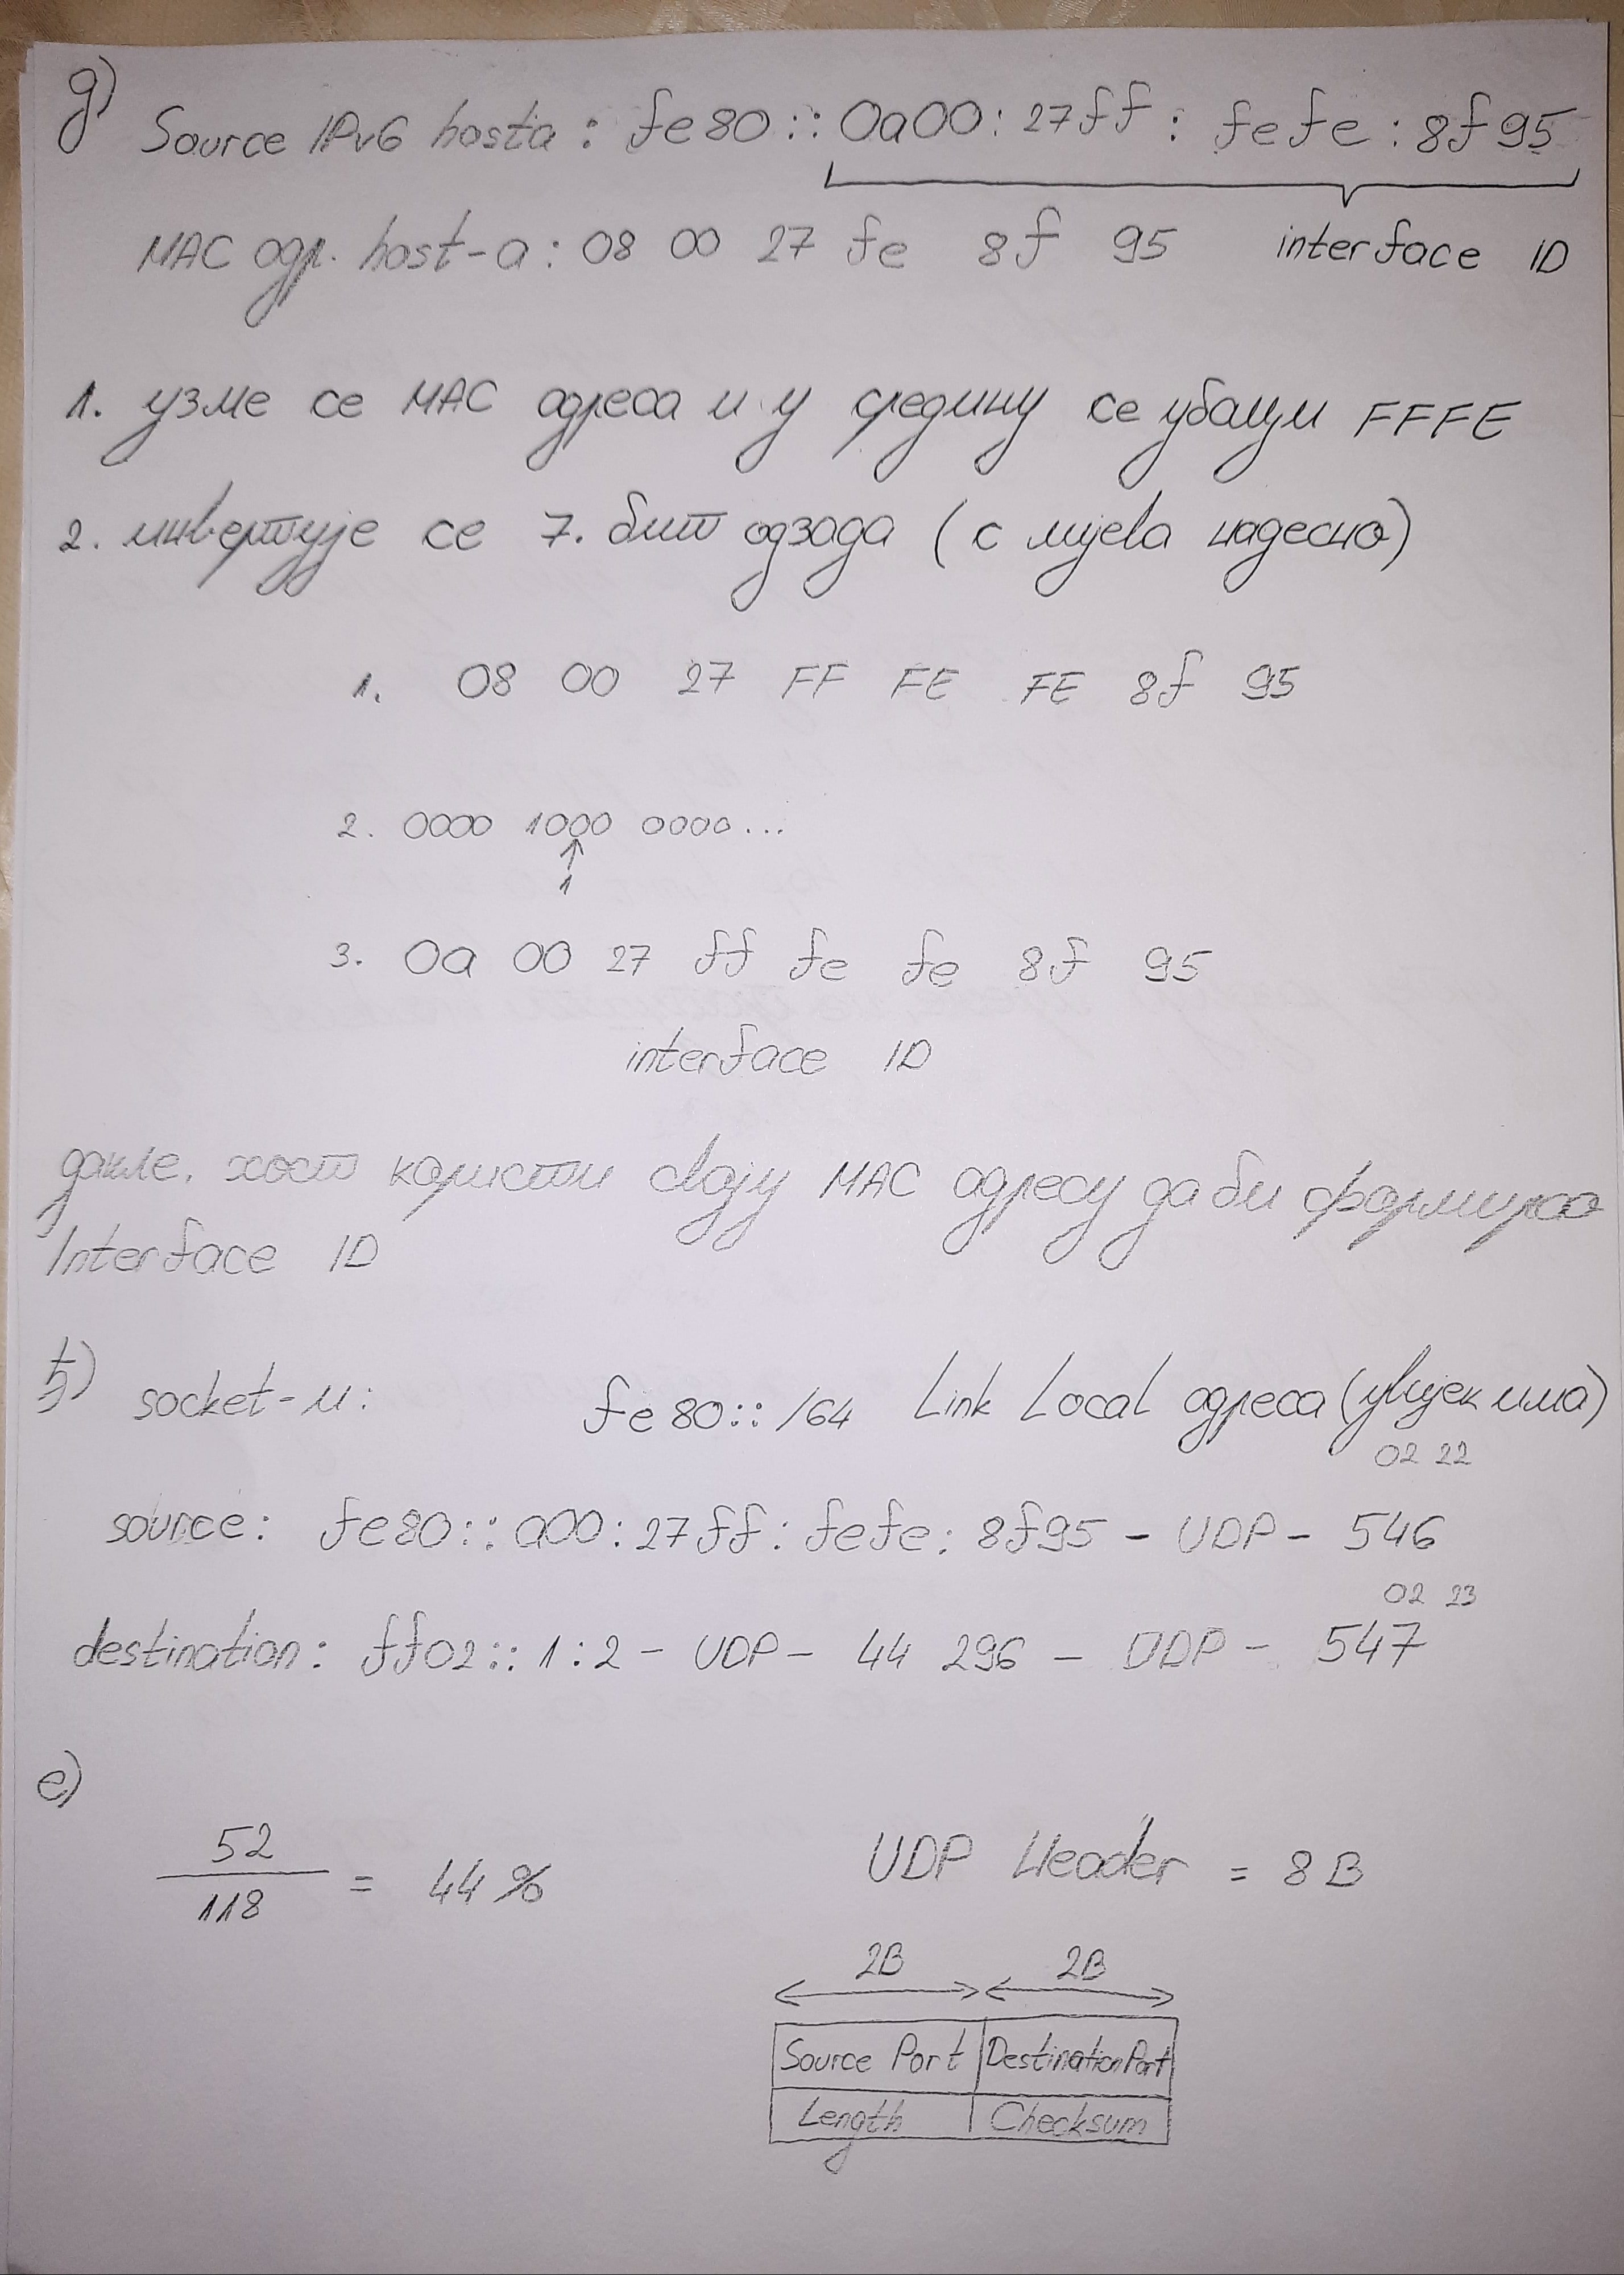 д) Source IPv6 hosta : fe80 :: 0a00 : 27ff : fefe : 8f95
МАС адр. host-а : 08 00 27 fe 8f 95 interface ID
1. узме се МАС адреса и у средину се убаци FFFE
2. инвертује се 7. бит одзада (с лијева надесно)
1. 08 00 27 FF FE FE 8f 95
2. 0000 1000 0000...
1
3. 0a 00 27 ff fe fe 8f 95
interface ID
дакле, хост користи своју МАС адресу да би формирао
Interface ID
ђ) socket-и: fe80:: /64 Link Local адреса (увијек има)
02 22
source: fe80 :: a00 : 27ff : fefe : 8f95 - UDP - 546
02 23
destination: ff02 :: 1 : 2 - UDP - 44 296 - UDP - 547
е)
52
118
= 44 %
UDP Header = 8 B
2B 2B
Source Port Destination Port
Length Checksum